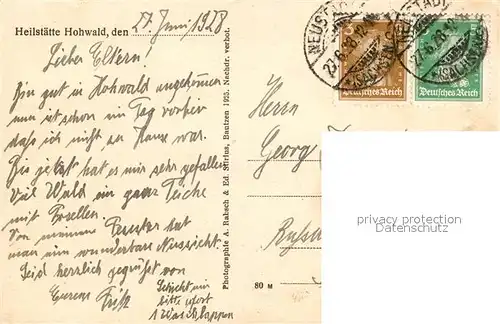 Heilstätte Hohwald, den 27. Juni 1928
Lieber Eltern!
Bin gut in Hohwald angekommen
nun ist schon ein Tag vorbei
daß ich nicht zu Hause war.
Bis jetzt hat es mir sehr gefallen
Viel Wald ein paar Teiche
mit Forellen.
Von meinem Fenster hat
man eine wunderbare Aussicht.
Seid herzlich gegrüßt von
Eurem Fritz
Schickt mir
bitte sofort
1 Waschlappen
Photographie A. Raksch & Ed. Stirius, Bautzen 1925. Nachdr. verbot.
80 M
NEUSTADT
27.6.28.12
(SACHSEN)
Deutsches Reich
NEUSTADT
27.6.28
(SACHSEN)
Deutsches Reich
Herrn
Georg
privacy protection
Datenschutz